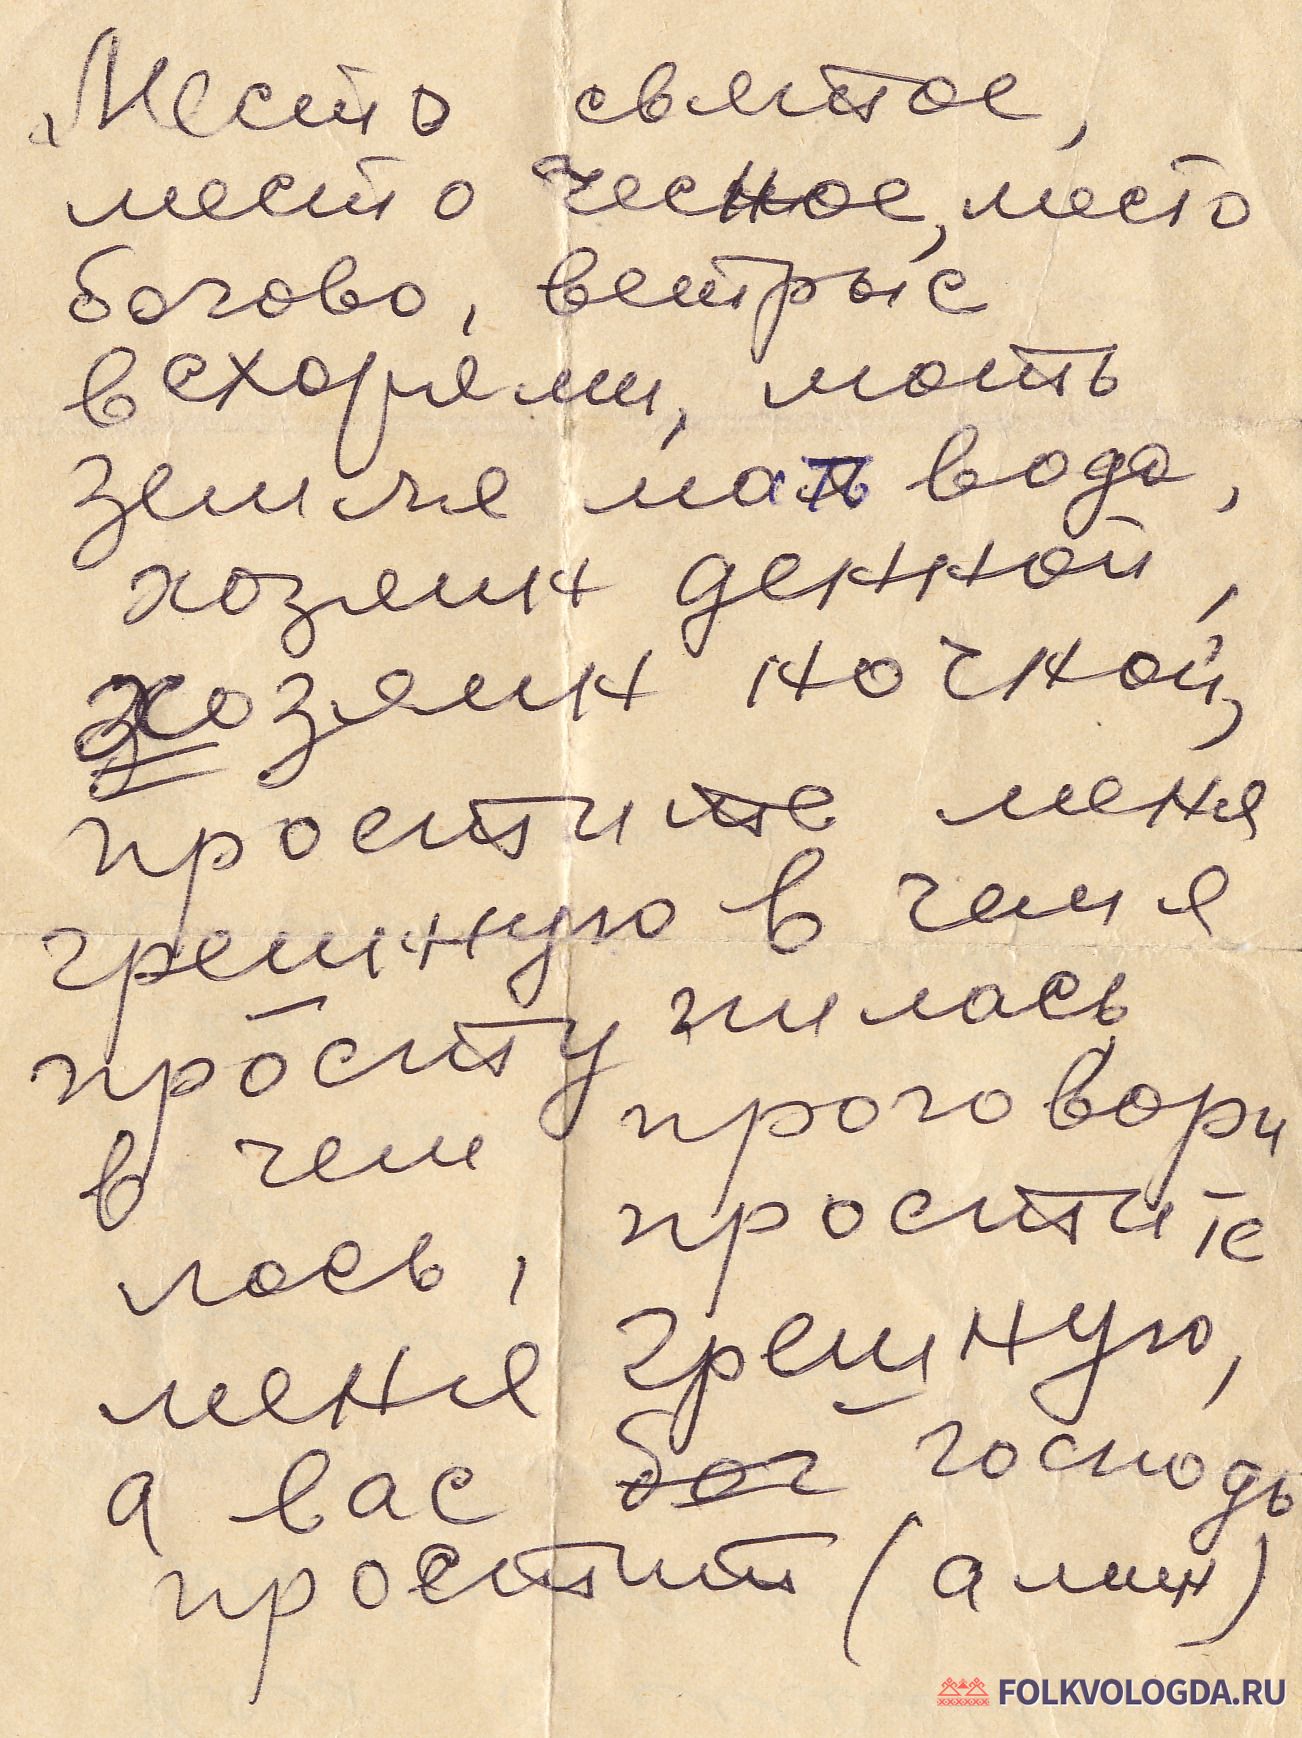 „Место святое,
место чесное, место
богово, ветрыс
вехорями, моть
земля мать вода,
хозяин денной,
хозяин ночной,
простите меня
грешную в чем я
простугнилась
в чем проговори
лось, простите
меня грешную,
а вас бог господь
простит (амин)
FOLKVOLOGDA.RU